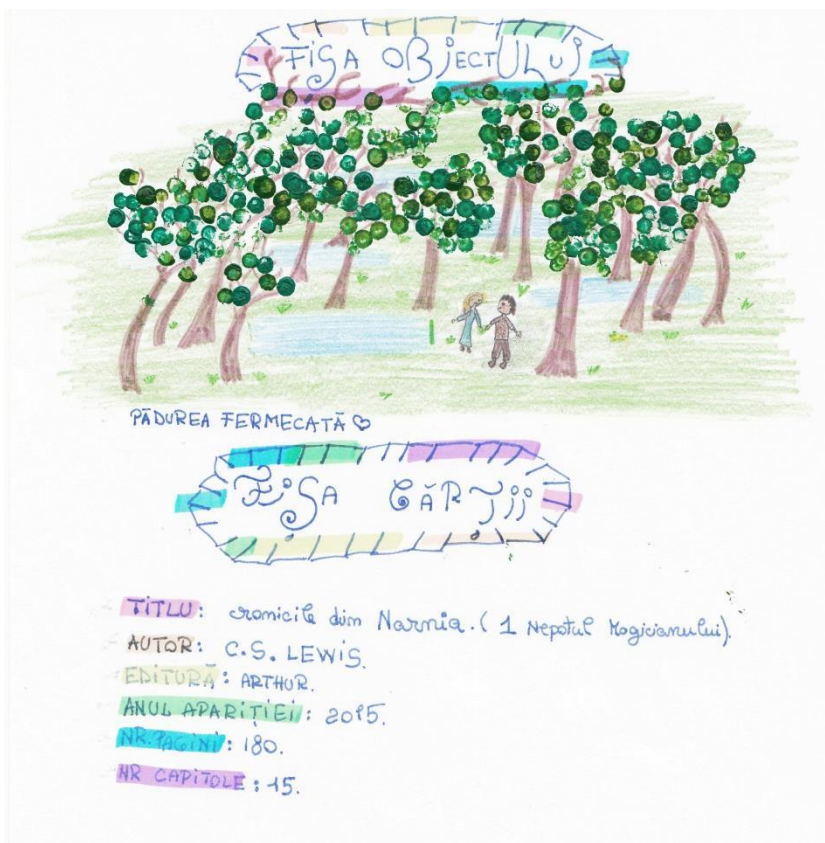 FIŞA OBJECTULUI
PĂDUREA FERMECATĂ ♡
FIŞA CĂRŢII
TITLU: cronicile din Narnia. (1 Nepotul Magicianului).
AUTOR: C.S. LEWIS.
EDITURĂ: ARTHUR.
ANUL APARIŢIEI: 2015.
NR. PAGINI: 180.
NR CAPITOLE: 15.